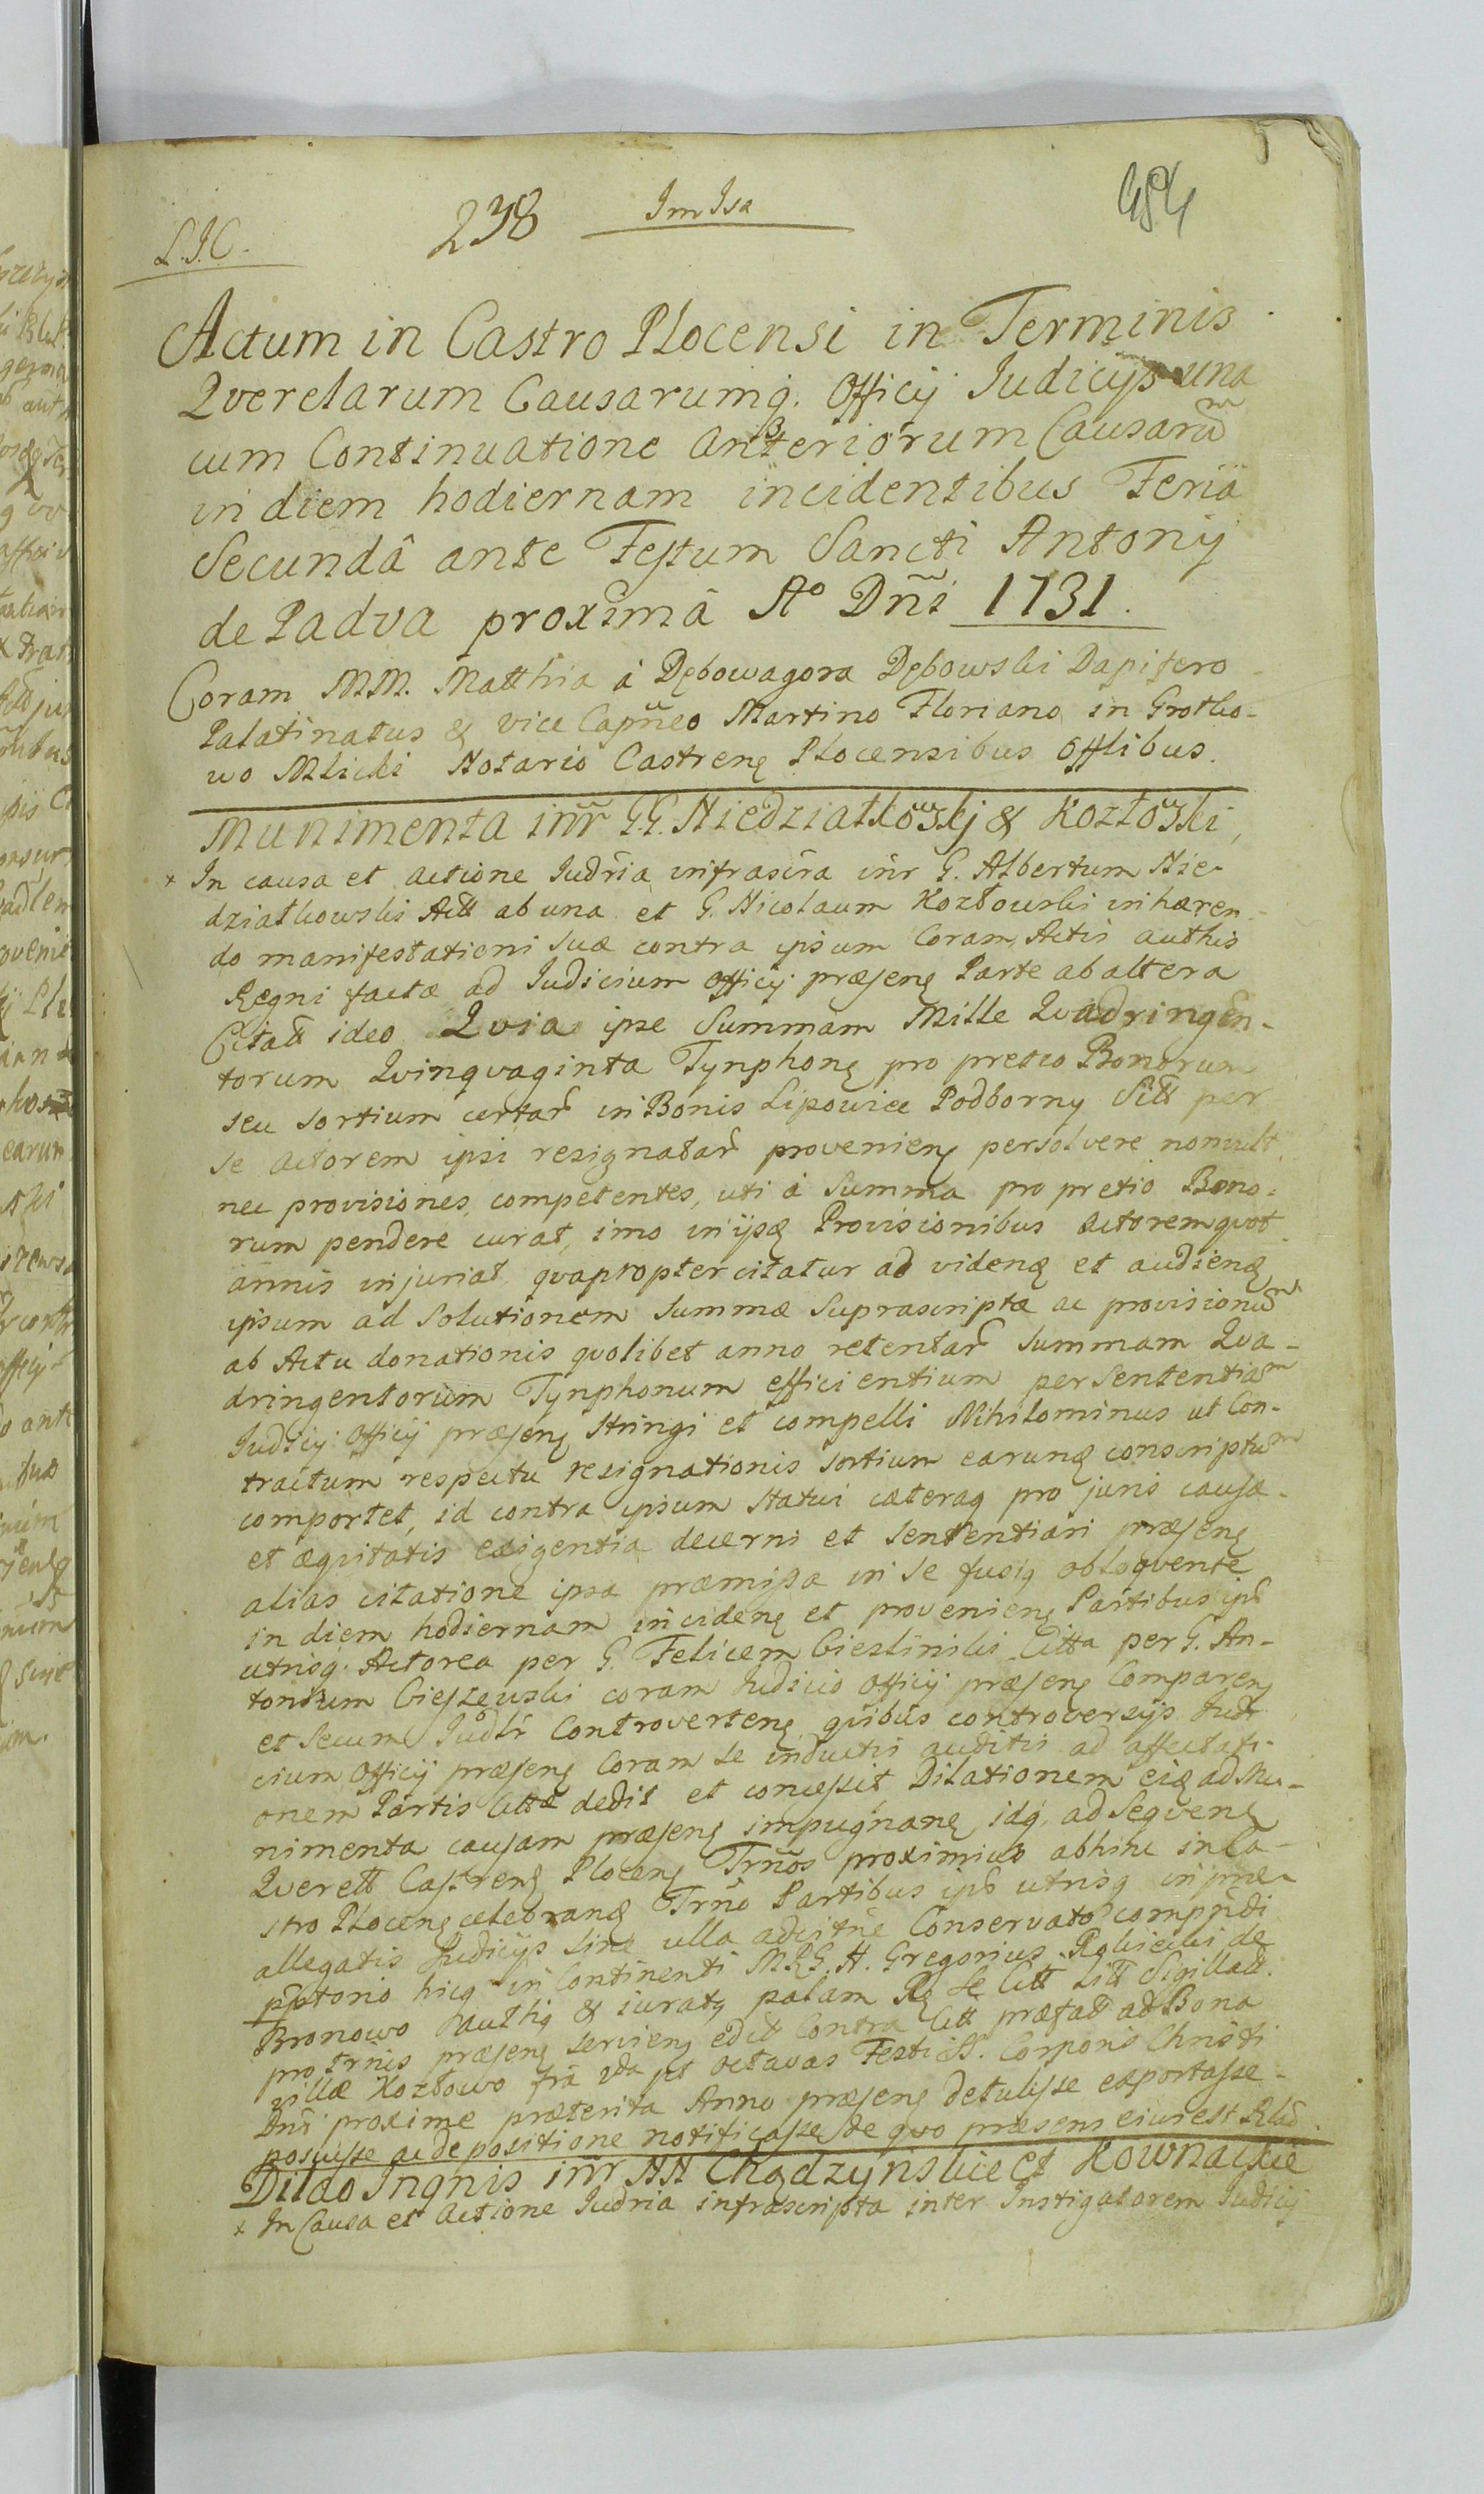 L.J.C. 238 Im Isa 484
Actum in Castro Plocensi in Terminis
Qverelarum Causarumq. Officij Iudicijs una
cum Continuatione anteriorum Causarum̃
in diem hodiernam incidentibus Feriâ
Secundâ ante Festum Sancti Antonij
de Padva proximâ Aº Dñi 1731.
Coram MM. Matthia à Dębowagora Dębowski Dapifero
Palatinatus & vice Capñeo Martino Floriano in Grotko-
wo Mlicki Notario Castrenę Plocensibus Offlibus.
Munimenta inr̃ G.G. Niedziałkowskj & Kozłowski,
+ In causa et actione Iudria infrascra inr G. Albertum Nie-
działkowski Actt ab una et G. Nicolaum Kozłowski inhæren-
do manifestationi suæ contra ipsum Coram Actis authis
Regni factæ ad Iudicium Officij præsenę Parte ab altera
Citatt ideo Qvia ipse Summam Mille Qvadringen-
torum Qvinqvaginta Tynphonę pro pretio Bonorum
seu sortium certar̃ in Bonis Lipowiec Podborny Sitt per
se actorem ipsi resignatar̃ provenienę persolvere nonvult
nec provisiones competentes, uti à Summa pro pretio Bono-
rum pendere curat, imo in ijsdę Provisionibus actorem qvot
annis injuriat qvapropter citatur ad videnę et audienę
ipsum ad Solutionem Summæ Suprascriptæ ac provisionum̃
ab Actu donationis qvolibet anno retentar̃ Summam Qva-
dringentorum Tynphonum efficientium per Sententiam̃
Iudicij Officij præsenę stringi et compelli Nihilominus ut Con-
tractum respectu resignationis sortium earunę conscriptum̃
comportet, id contra ipsum statui cæteraq pro juris causæ
et æqvitatis exigentia decerni et sententiari præsenę
alias citatione ipsa præmissa in se fusię obloqvente
in diem hodiernam incidenę et provenienę Partibus ips̃
utrisq. Actorea per G. Felicem Cieslinski Citta per G. An-
tonium Cieszewski coram Iudicio Officij præsenę Comparenę
et secum Iudlr Controvertenę qvibus controversijs Iudi
cium Officij præsenę Coram se inductis auditis ad affectati-
onem Partis Cittæ dedit et concessit Dilationem eiꝗ ad Mu-
nimenta causam præsenę impugnanę idq. ad Seqvenę
Qverell Castrenę Plocenę Trños proximius abhinc in Ca-
stro Plocenę celebranę Trño Partibus ips̃ utrisq in præ-
allegatis Iudicijs sine ulla adcitne Conservato compñdi
pptorio hicq in Continenti MRG. H. Gregorius de
Bronowo authę & juratę palam Rę se Citt Litt Sigillatt
pro trinis præsenę servienę edit Contra Citt præfatt ad Bona
villæ Kozłowo fria 2da pt octavas Festi S. Corporis Christi
Dni proxime præterita Anno præsenę detulisse exportasse
posuisse ac de positione notificasse de qvo præsens eius est Rlao.
Dilao Inqnis inr̃ NN Chądzyńskie et Kownackie
+ In Causa et Actione Iudria infrascripta inter Instigatorem Iudicij